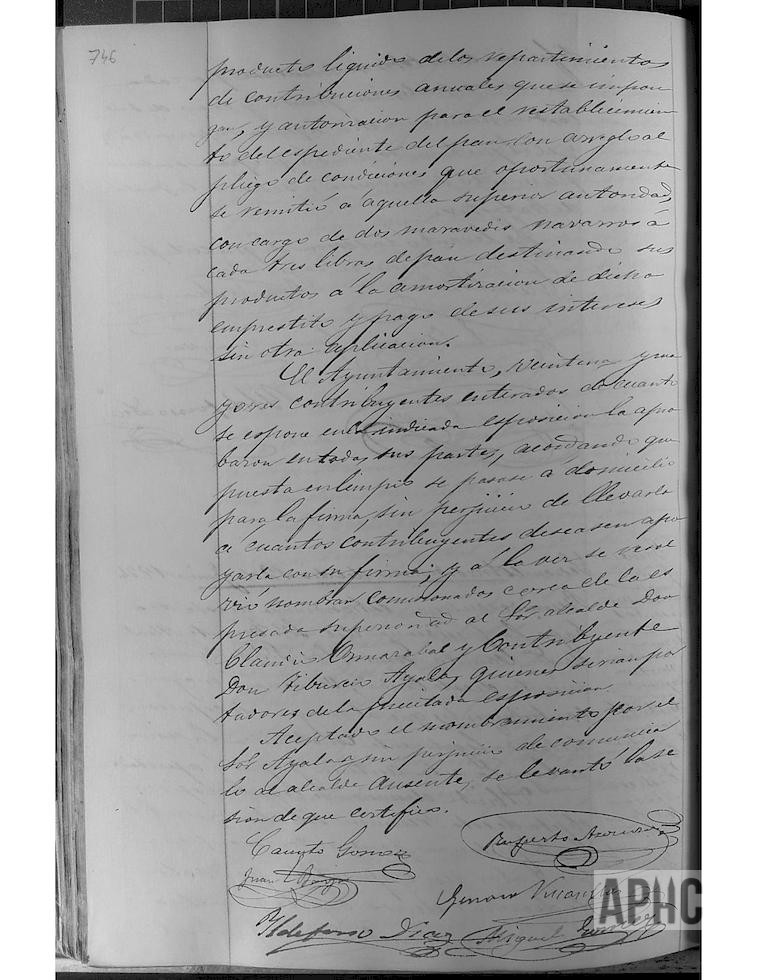 746
producto liquido de los repartimientos
de contribuciones anuales que se impon
gan, y autorizacion para el restablecimien
to del espediente del pan con arreglo al
pliego de condiciones que oportunamente
se remitió á aquella superior autoridad,
con cargo de dos maravedis navarros á
cada tres libras de pan destinando sus
productos á la amortizacion de dicho
emprestito y pago de sus intereses
sin otra aplicacion.
El Ayuntamiento, Veintena y ma
yores contribuyentes enterados de cuanto
se espone en la indicada esposicion la apro
baron en todas sus partes, acordando que
puesta en limpio se pasase a domicilio
para la firma, sin perjuicio de llevarla
á cuantos contribuyentes deseasen apo
yarla con su firma; y á la vez se resol
vió nombrar comisionados cerca de la es
presada superioridad al Sor. alcalde Don
Claudio y Contribuyente
Don Tiburcio Ayala, quienes serian por
tadores de la precitada esposicion.
Aceptado el nombramiento por el
Sor. Ayala y sin perjuicio de comunicar
lo al alcalde ausente, se levantó la se
sion de que certifico.
Canuto Gomez
Ruperto
Juan
Genaro
Ildefonso Diaz
Miguel
APHC